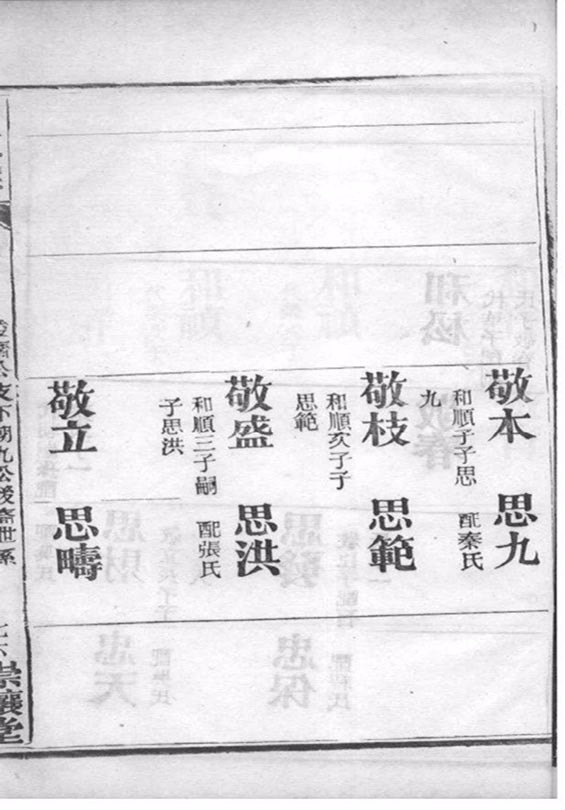 敬本
和順子子思
九
敬枝
和順亥子子
思範
敬盛
和順三子嗣
子思洪
敬立
思九
配秦氏
思範
思洪
配張氏
思疇
公支下朝九公後裔世系
崇讓堂